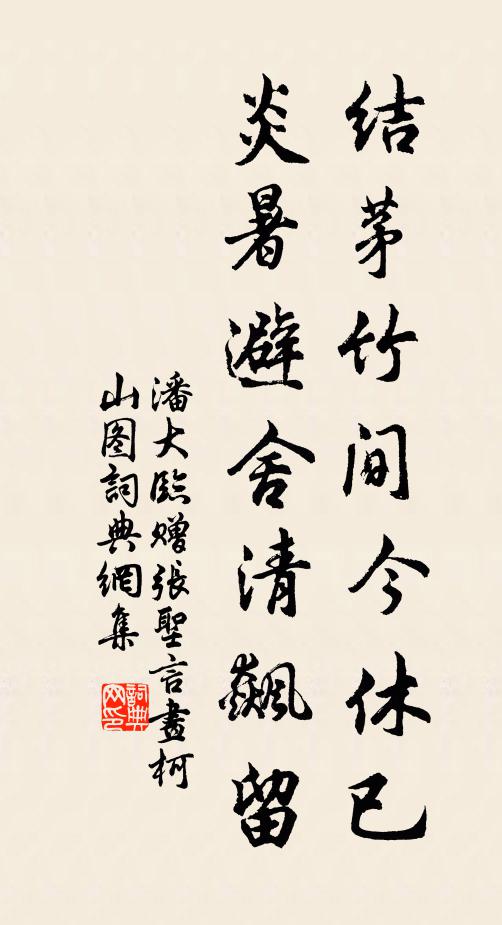 结茅竹间今休已
炎暑避舍清飙留
潘大临赠张聖言畫柯
山图詞典網集
詞典网印